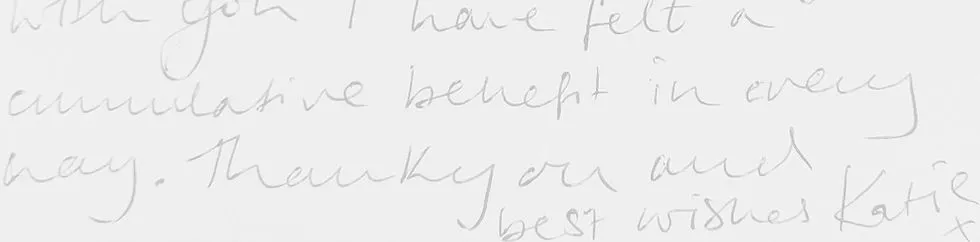 with you I have felt a
cumulative benefit in every
way. Thankyou and
best wishes Katie
x